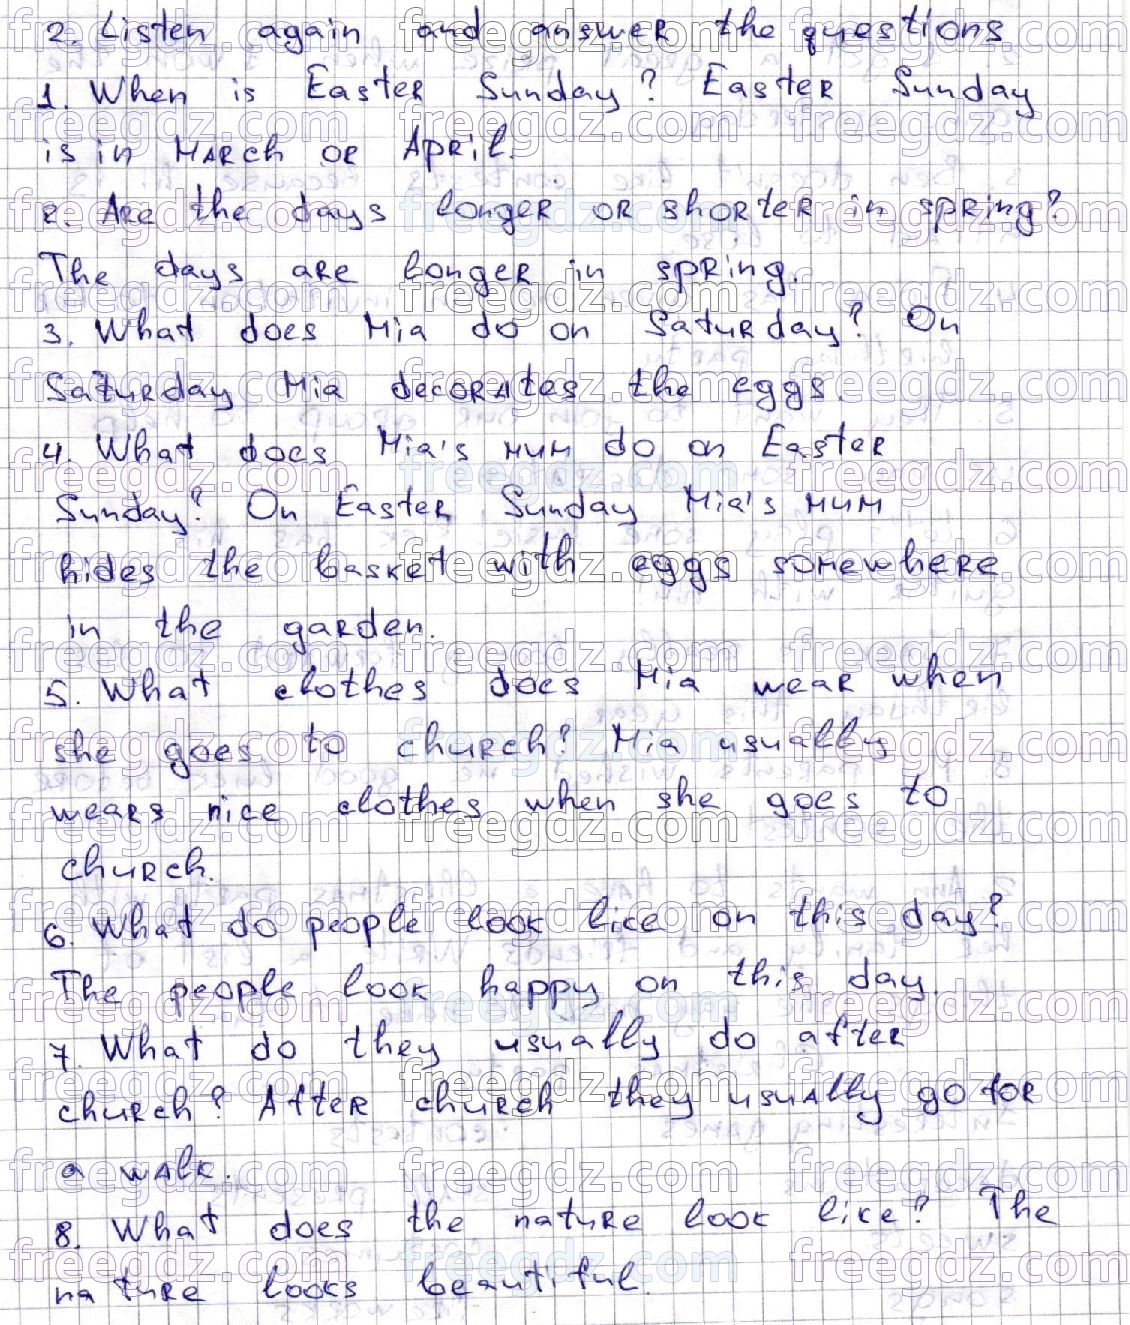 2. Listen again and answer the questions
1. When is Easter Sunday? Easter Sunday
is in March or April.
2. Are the days longer or shorter in spring?
The days are longer in spring.
3. What does Mia do on Saturday? On
Saturday Mia decorates the eggs.
4. What does Mia's mum do on Easter
Sunday? On Easter Sunday Mia's mum
hides the basket with eggs somewhere
in the garden.
5. What clothes does Mia wear when
she goes to church? Mia usually
wears nice clothes when she goes to
church.
6. What do people look like on this day?
The people look happy on this day.
7. What do they usually do after
church? After church they usually go for
a walk.
8. What does the nature look like? The
nature looks beautiful.